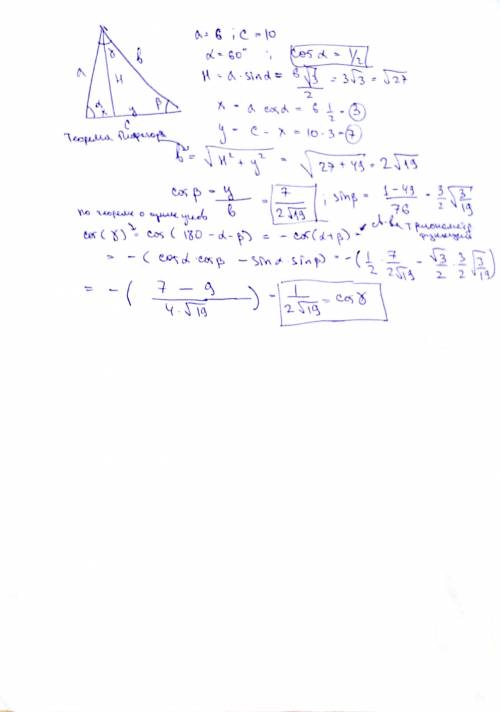 a = 6 ; c = 10
α = 60° ; cos α = 1/2
H = a · sin α = 6√3/2 = 3√3 = √27
x = a cos α = 6 1/2 = 3
y = c - x = 10 - 3 = 7
a γ H b
α x y β
c
Теорема Пифагора
b = √(H² + y²) = √(27 + 49) = 2√19
cos β = y/b = 7/(2√19) ; sin β = √(1 - 49/76) = 3/2 √(3/19)
по теореме о сумме углов
cos(γ) = cos(180 - α - β) = - cos(α + β) =
св-ва тригонометр функций
= - (cos α · cos β - sin α · sin β) = - (1/2 · 7/(2√19) - √3/2 · 3/2 √(3/19))
= - ((7 - 9)/(4 · √19)) = 1/(2√19) = cos γ